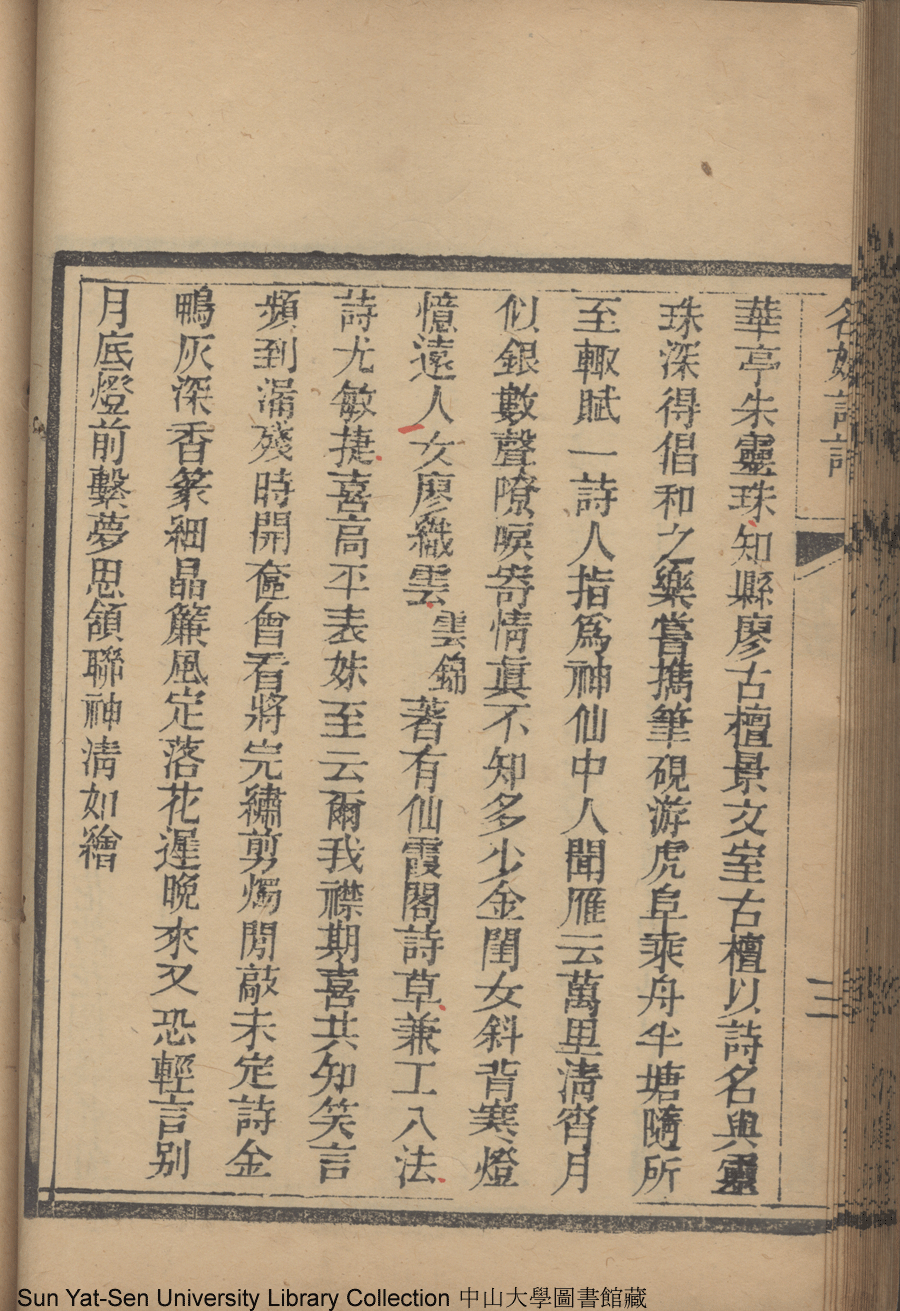 名媛詩話
三
華亭朱靈珠知縣廖古檀景文室古檀以詩名與靈
珠深得倡和之樂嘗攜筆硯游虎阜乘舟半塘隨所
至輙賦一詩人指爲神仙中人聞雁云萬里淸宵月
似銀數聲嘹唳寄情眞不知多少金閨女斜背寒燈
憶遠人女廖織雲雲錦著有仙霞閣詩草兼工八法
詩尤敏捷喜高平表妹至云爾我襟期喜共知笑言
頻到漏殘時開奩曾看將完繡剪燭閒敲未定詩金
鴨灰深香篆細晶簾風定落花遲晩來又恐輕言别
月底燈前繫夢思頷聯神淸如繪
Sun Yat-Sen University Library Collection 中山大學圖書館藏